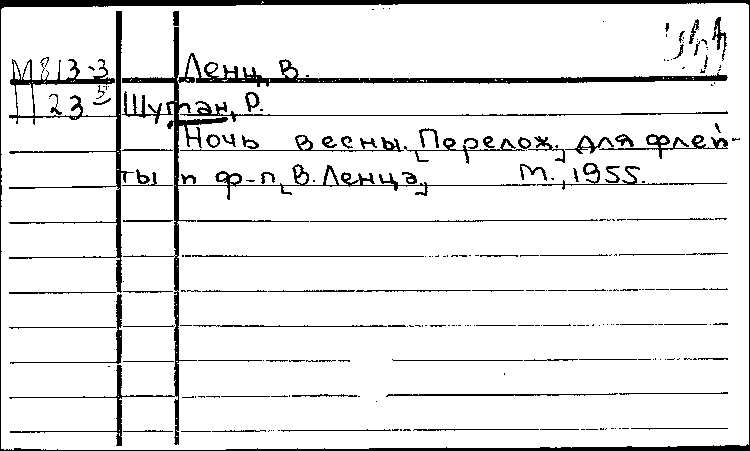 М813-3 Ленц, В.
Шуман, Р.
Ночь весны. [Перелож.] для флей-
ты и ф-п [В. Ленца] М., 1955.